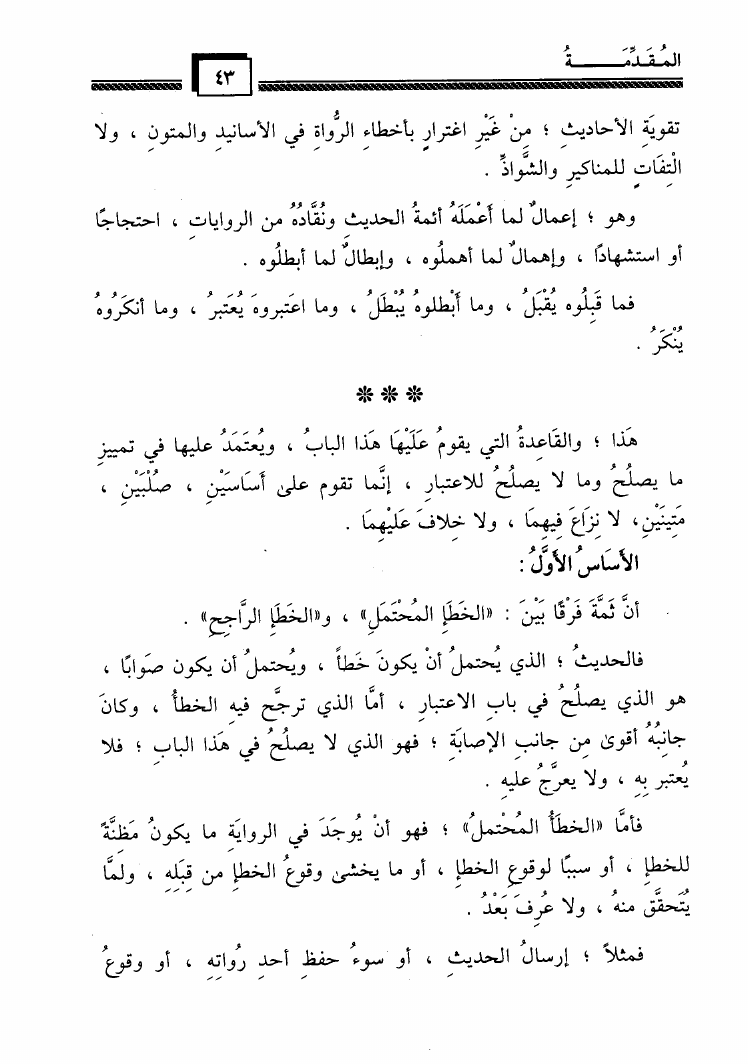 المُقَدِّمَـــــــةُ
٤٣
تقويَةِ الأحاديثِ ؛ مِنْ غَيْرِ اغترارٍ بأخطاءِ الرُّواةِ في الأسانيدِ والمتونِ ، ولا
الْتِفَاتٍ للمناكيرِ والشَّواذِّ .
وهو ؛ إعمالٌ لما أَعْمَلَهُ أئمةُ الحديثِ ونُقَّادُهُ من الرواياتِ ، احتجاجًا
أو استشهادًا ، وإهمالٌ لما أهملُوه ، وإبطالٌ لما أبطلُوه .
فما قَبِلُوه يُقْبَلُ ، وما أَبْطلوهُ يُبْطَلُ ، وما اعتبروهَ يُعتَبرُ ، وما أنكَرُوهُ
يُنْكَرُ .
***
هَذا ؛ والقَاعِدةُ التي يقومُ عَلَيْهَا هَذا البابُ ، ويُعتَمَدُ عليها في تمييزِ
ما يصلُحُ وما لا يصلُحُ للاعتبارِ ، إنَّما تقوم علىٰ أَسَاسَيْنِ ، صُلْبَيْنِ ،
مَتِينَيْنِ، لا نِزَاعَ فِيهِمَا ، ولا خِلافَ عَلَيْهِمَا .
الأَسَاسُ الأَوَّلُ :
أنَّ ثَمَّةَ فَرْقًا بَيْنَ : «الخَطَإِ المُحْتَمَلِ» ، و«الخَطَإِ الرَّاجِحِ» .
فالحديثُ ؛ الذي يُحتملُ أنْ يكونَ خَطأً ، ويُحتملُ أن يكون صَوابًا ،
هو الذي يصلُحُ في بابِ الاعتبارِ ، أمَّا الذي ترجَّح فيهِ الخطأُ ، وكانَ
جانِبُهُ أقوىٰ مِن جانبِ الإصابَةِ ؛ فهو الذي لا يصلُحُ في هَذا البابِ ؛ فلا
يُعتبر بِهِ ، ولا يعرَّجُ عليهِ .
فأمَّا «الخطَأُ المُحْتملُ» ؛ فهو أنْ يُوجَدَ في الروايَةِ ما يكونُ مَظِنَّةً
للخطإِ ، أو سببًا لوقوعِ الخطإِ ، أو ما يخشىٰ وقوعُ الخطإِ من قِبَلِهِ ، ولمَّا
يُتَحقَّق منهُ ، ولا عُرِفَ بَعْدُ .
فمثلاً ؛ إرسالُ الحديثِ ، أو سوءُ حفظِ أحدِ رُواتِهِ ، أو وقوعُ